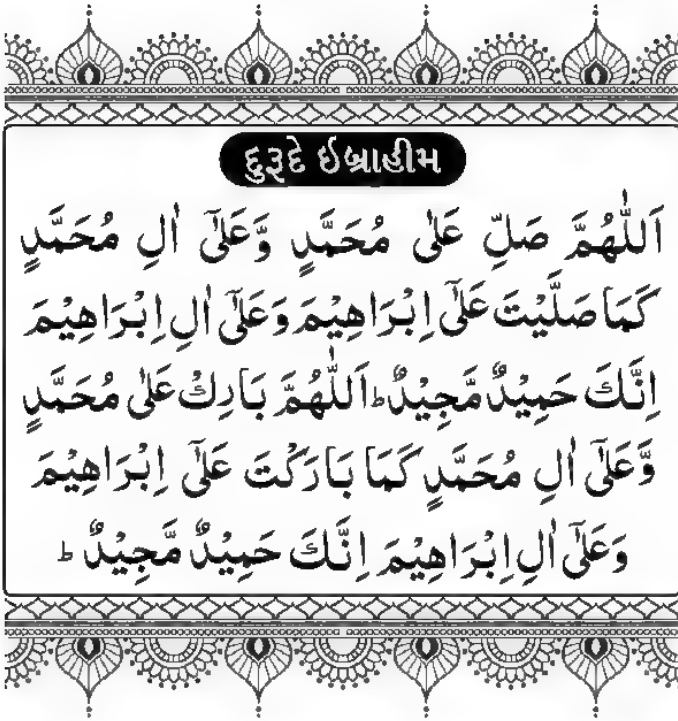 દુરૂદે ઈબ્રાહીમ
اَللّٰهُمَّ صَلِّ عَلٰى مُحَمَّدٍ وَّعَلٰٓى اٰلِ مُحَمَّدٍ
كَمَا صَلَّيْتَ عَلٰٓى اِبْرَاهِيْمَ وَعَلٰٓى اٰلِ اِبْرَاهِيْمَ
اِنَّكَ حَمِيْدٌ مَّجِيْدٌ ؕ اَللّٰهُمَّ بَارِكْ عَلٰى مُحَمَّدٍ
وَّعَلٰٓى اٰلِ مُحَمَّدٍ كَمَا بَارَكْتَ عَلٰٓى اِبْرَاهِيْمَ
وَعَلٰٓى اٰلِ اِبْرَاهِيْمَ اِنَّكَ حَمِيْدٌ مَّجِيْدٌ ؕ